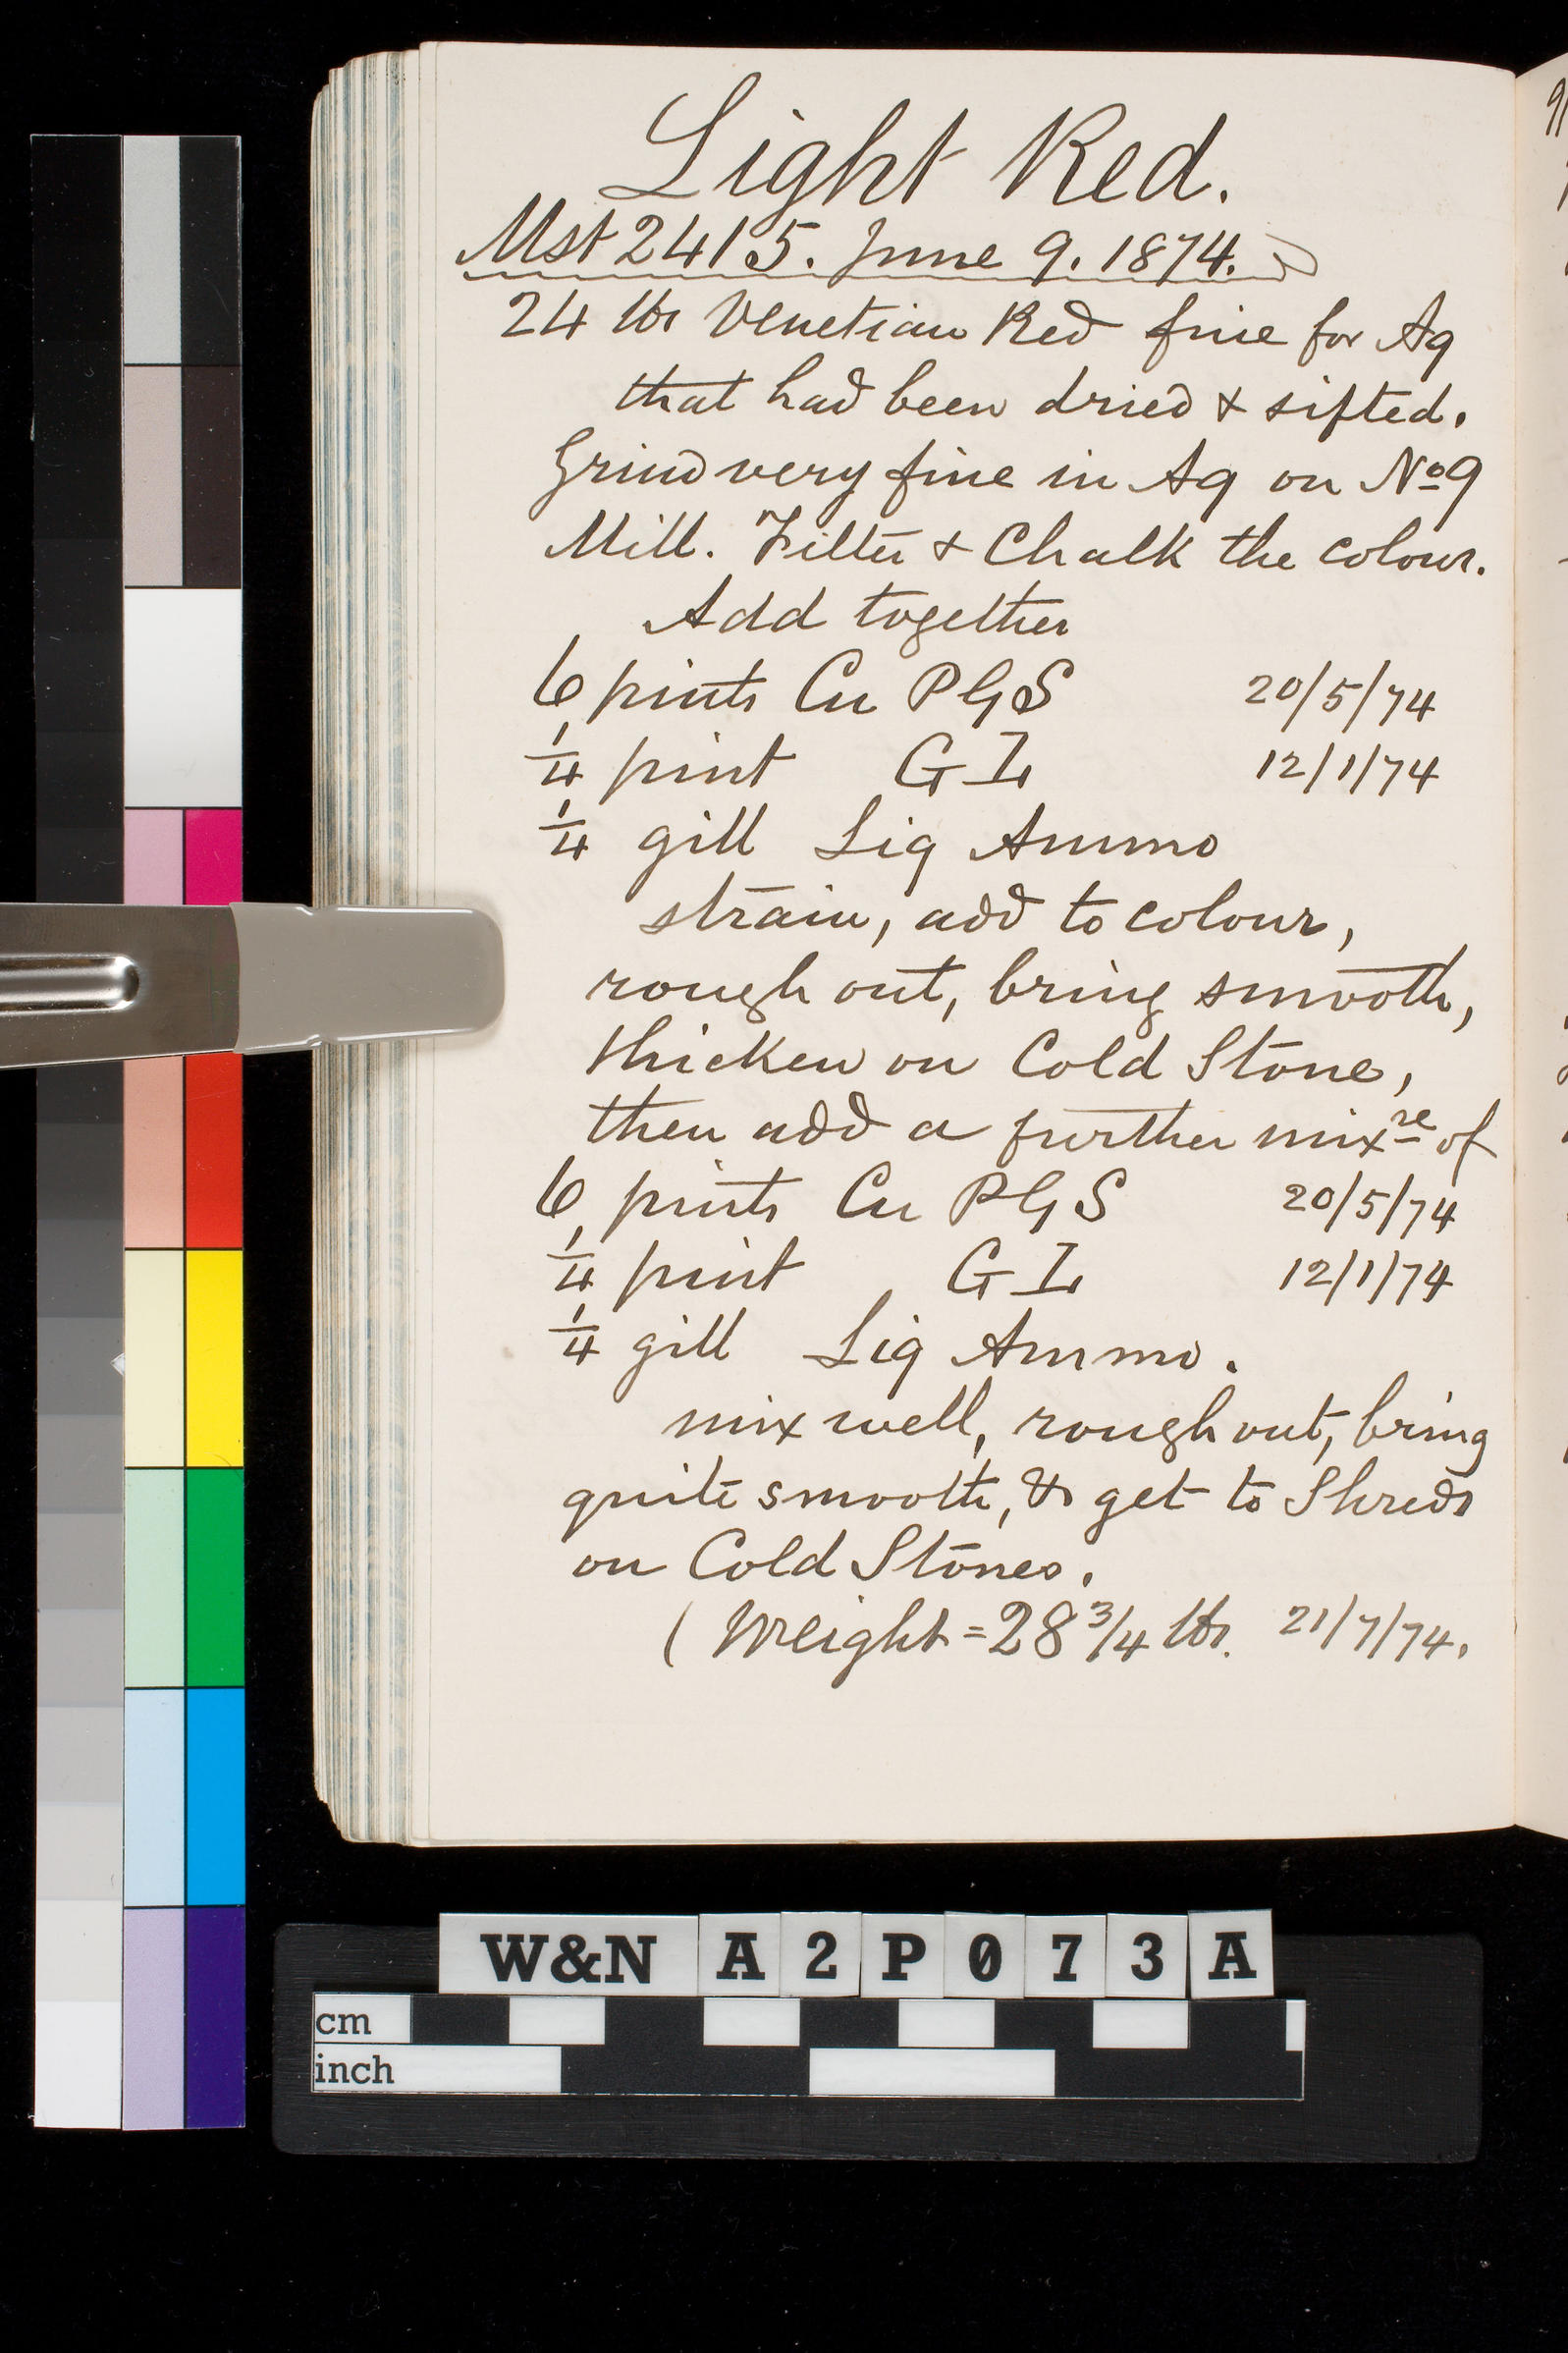 Light Red.
Mst 2415. June 9. 1874.
24 lbs Venetian Red fine for Aq
that had been dried & sifted.
Grind very fine in Aq on No 9
Mill. Filter & Chalk the colour.
Add together
6 pints Cu PGS 20/5/74
1/4 pint G I 12/1/74
1/4 gill Liq Ammo
strain, add to colour,
rough out, bring smooth,
thicken on Cold Stone,
then add a further mixre of
6 pints Cu PGS 20/5/74
1/4 pint G I 12/1/74
1/4 gill Liq Ammo.
mix well, rough out, bring
quite smooth, & get to Shreds
on Cold Stones.
( Weight = 28 3/4 lbs. 21/7/74.
W&N A2P073A
cm
inch